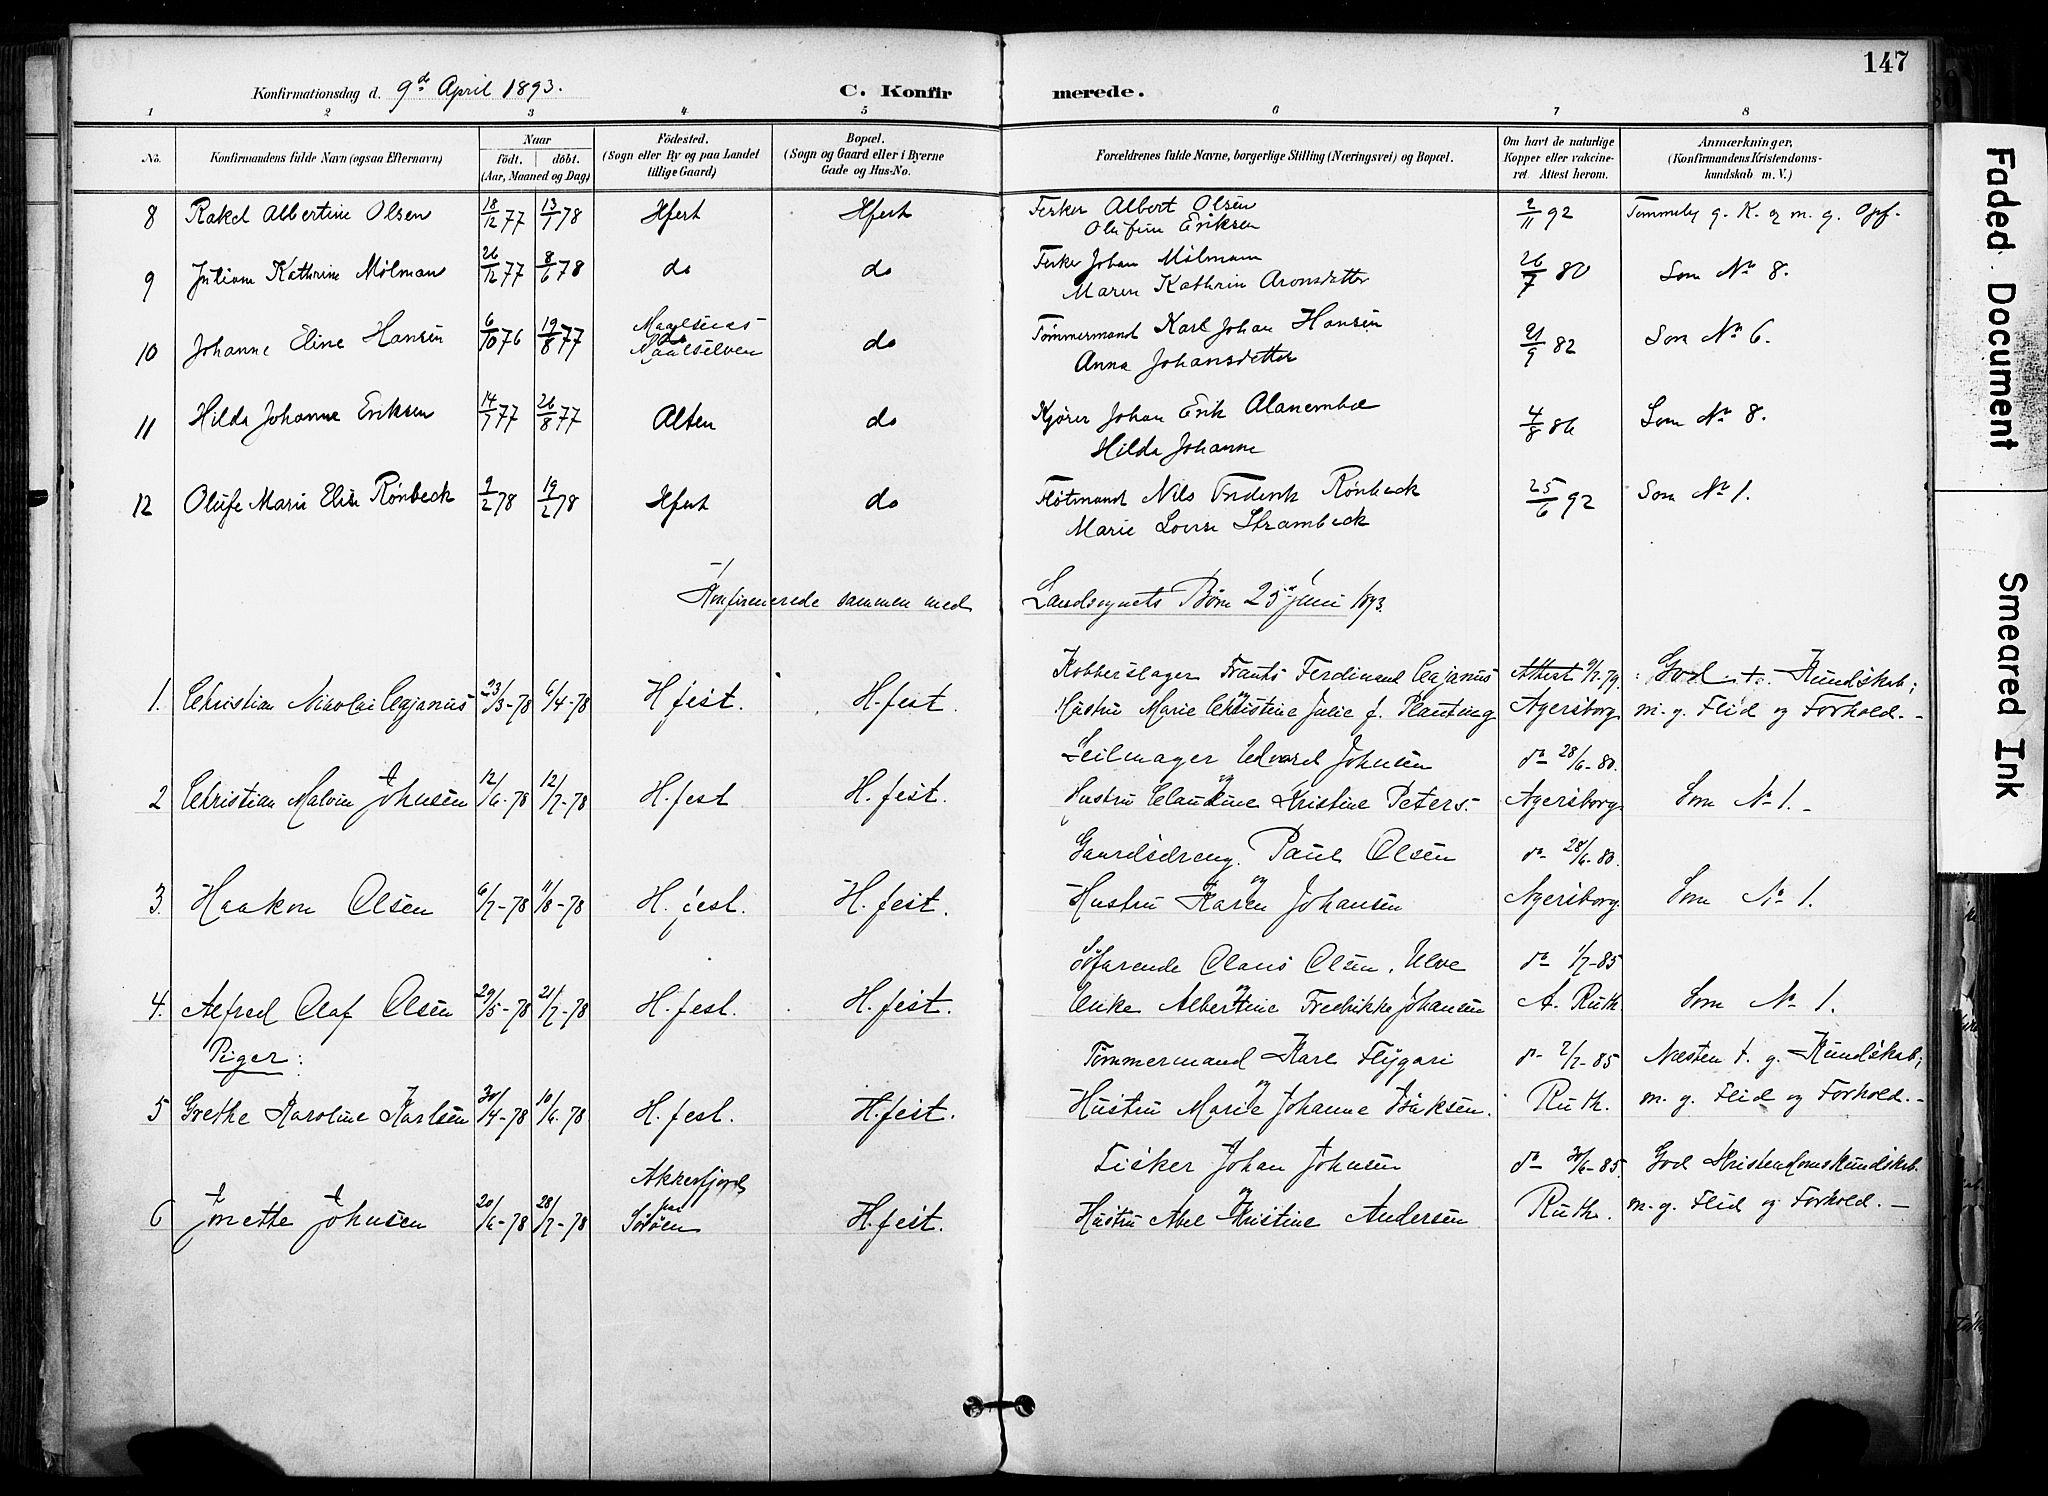 147
Konfirmationsdag d. 9de April 1893. C. Konfirmerede.
1 2 3 4 5 6 7 8
No. Konfirmandens fulde Navn (ogsaa Efternavn) Naar födt. döbt. (Aar, Maaned og Dag) Födested. (Sogn eller By og paa Landet tillige Gaard) Bopæl. (Sogn og Gaard eller i Byerne Gade og Hus-No. Forældrenes fulde Navne, borgerlige Stilling (Næringsvei) og Bopæl. Om havt de naturlige Kopper eller vakcineret. Attest herom. Anmærkninger, (Konfirmandens Kristendomskundskab m. V.)
8 Rakel Albertine Olsen 18/12 77 13/1 78 Hfest Hfest Fisker Albert Olsen 2/11 92 Temmelig g. K. og m. g. Opf.
Olufine Eriksen
9 Juliane Kathrine Mölmans 26/12 77 8/6 78 do do Fisker Johan Mölmann 26/7 80 Som No 8.
Maren Kathrin Aronsdatter
10 Johanne Eline Hansen 6/10 76 19/8 77 Maalsnes Maalselven do Tømmermand Karl Johan Hansen 21/9 82 Som No 6.
Anna Johansdatter
11 Hilda Johanne Eriksen 14/7 77 26/8 77 Alten do Kjører Johan Erik 4/8 86 Som No 8.
Hilda Johanne
12 Olufe Marie Elise Rönbeck 9/2 78 19/2 78 Hfest do Fløtmand Nils Fredrik Rönbeck 25/6 92 Som No 1.
Marie Lovise Strambeck
Konfirmerede sammen med Landsognets Børn 25de Juni 1893
Kobberslager Frants Ferdinand Cajanus Attest 9/7-79. God Kundskab;
1. Christian Nicolai Cajanus 23/3-78 6/4-78 H.fest. H.fest. og Hustru Marie Christine Julie f. Planting Agersborg m. g. Flid og Forhold.-
Seilmager Edvard Johnsen do 28/6-80.
2 Christian Malvin Johnsen 12/6-78 12/7-78 H.fest H.fest. og Hustru Claudine Kristine Peters. Agersborg Som No 1.-
Gaardsdreng Paul Olsen do 28/6-80.
3. Haakon Olsen 6/7-78 11/8-78 H.fest. H.fest. og Hustru Karen Johansen Agersborg. Som No 1.
Söfarende Olaus Olsen, Ulve do 1/7-85
4. Alfred Olaf Olsen 29/5-78 21/7-78 H.fest. H.fest. og Enke Albertine Fredrikke Johansen A. Ruth Som No 1.
Piger: Tömmermand Karl Flygari do 2/7-85 Næsten t. g. Kundskab;
5 Grethe Karoline Karlsen 30/4-78 10/6-78 H.fest. H.fest. og Hustru Marie Johanne Isaksen. Ruth. m. g. Flid og Forhold.-
Fisker Johan Johnsen do 30/6-85 God Kristendomskundskab.
6 Jonette Johnsen 20/6-78 28/7-78 Akkerfjord paa Söröen H.fest. og Hustru Abel Kristine Andersen Ruth. m. g. Flid og Forhold.-
Faded Document
Smeared Ink